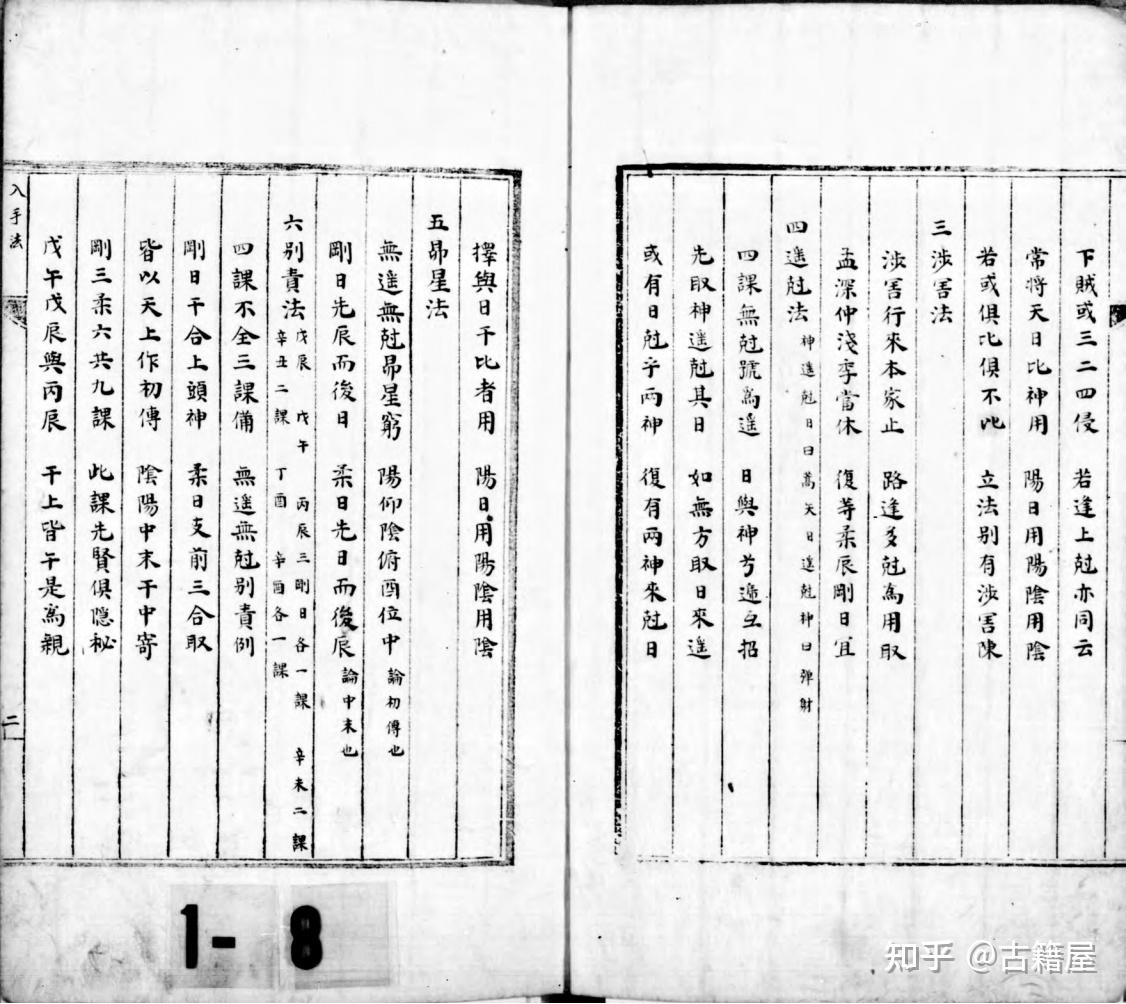 下賊或三二四侵　若逢上尅亦同云
常將天日比神用　陽日用陽陰用陰
若或俱比俱不比　立法别有涉害陳
三涉害法
涉害行來本家止　路逢多尅為用取
孟深仲淺季當休　復等柔辰剛日宜
四遥尅法 神遥尅日曰蒿矢日遥尅神曰彈射
四課無尅號為遥　日與神兮遞互招
先取神遥尅其日　如無方取日來遥
或有日尅乎兩神　復有兩神來尅日
擇與日干比者用　陽日用陽陰用陰
五昴星法
無遥無尅昴星窮　陽仰陰俯酉位中 論初傳也
剛日先辰而後日　柔日先日而後辰 論中末也
六别責法 戊辰 戊午 丙辰三剛日各一課 辛未二課
辛丑二課 丁酉 辛酉各一課
四課不全三課備　無遥無尅别責例
剛日干合上頭神　柔日支前三合取
皆以天上作初傳　陰陽中末干中寄
剛三柔六共九課　此課先賢俱隠秘
戊午戊辰與丙辰　干上皆午是為親
入手法
二
1-8
知乎 @古籍屋